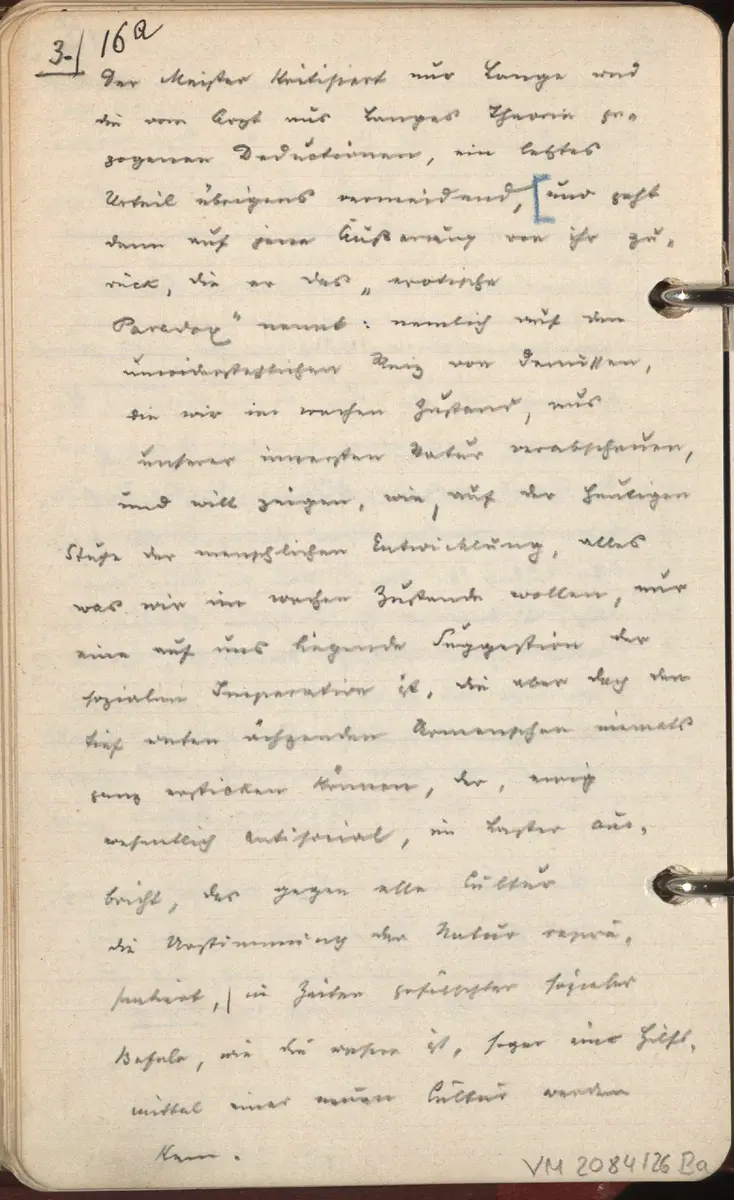 3-/ 16a
Der Meister kritisiert nur Lange und
die vom Arzt aus Langes Theorie ge-
zogenen Deductionen, ein letztes
Urteil übrigens vermeidend, [und geht
dann auf jene Äußerung von ihr zu-
rück, die er das „erotische
Paradox" nennt: nemlich auf den
unwiderstehlichen Reiz von Genüssen,
die wir im wachen Zustand, aus
unserer innersten Natur verabscheuen,
und will zeigen, wie, auf der heutigen
Stufe der menschlichen Entwicklung, alles
was wir im wachen Zustande wollen, nur
eine auf uns liegende Suggestion der
sozialen ist, die aber doch den
tief unten ächzenden Urmenschen niemals
ganz ersticken können, der, ewig
wesentlich antisocial, im Laster aus-
bricht, das gegen alle Cultur
die Urstimmung der Natur reprä-
sentiert, / in Zeiten gefälschter sozialer
Befele, wie die unsere ist, sogar eine Hilfs-
mittel einer neuen Cultur werden
kann.
VM 2084/26 Ba